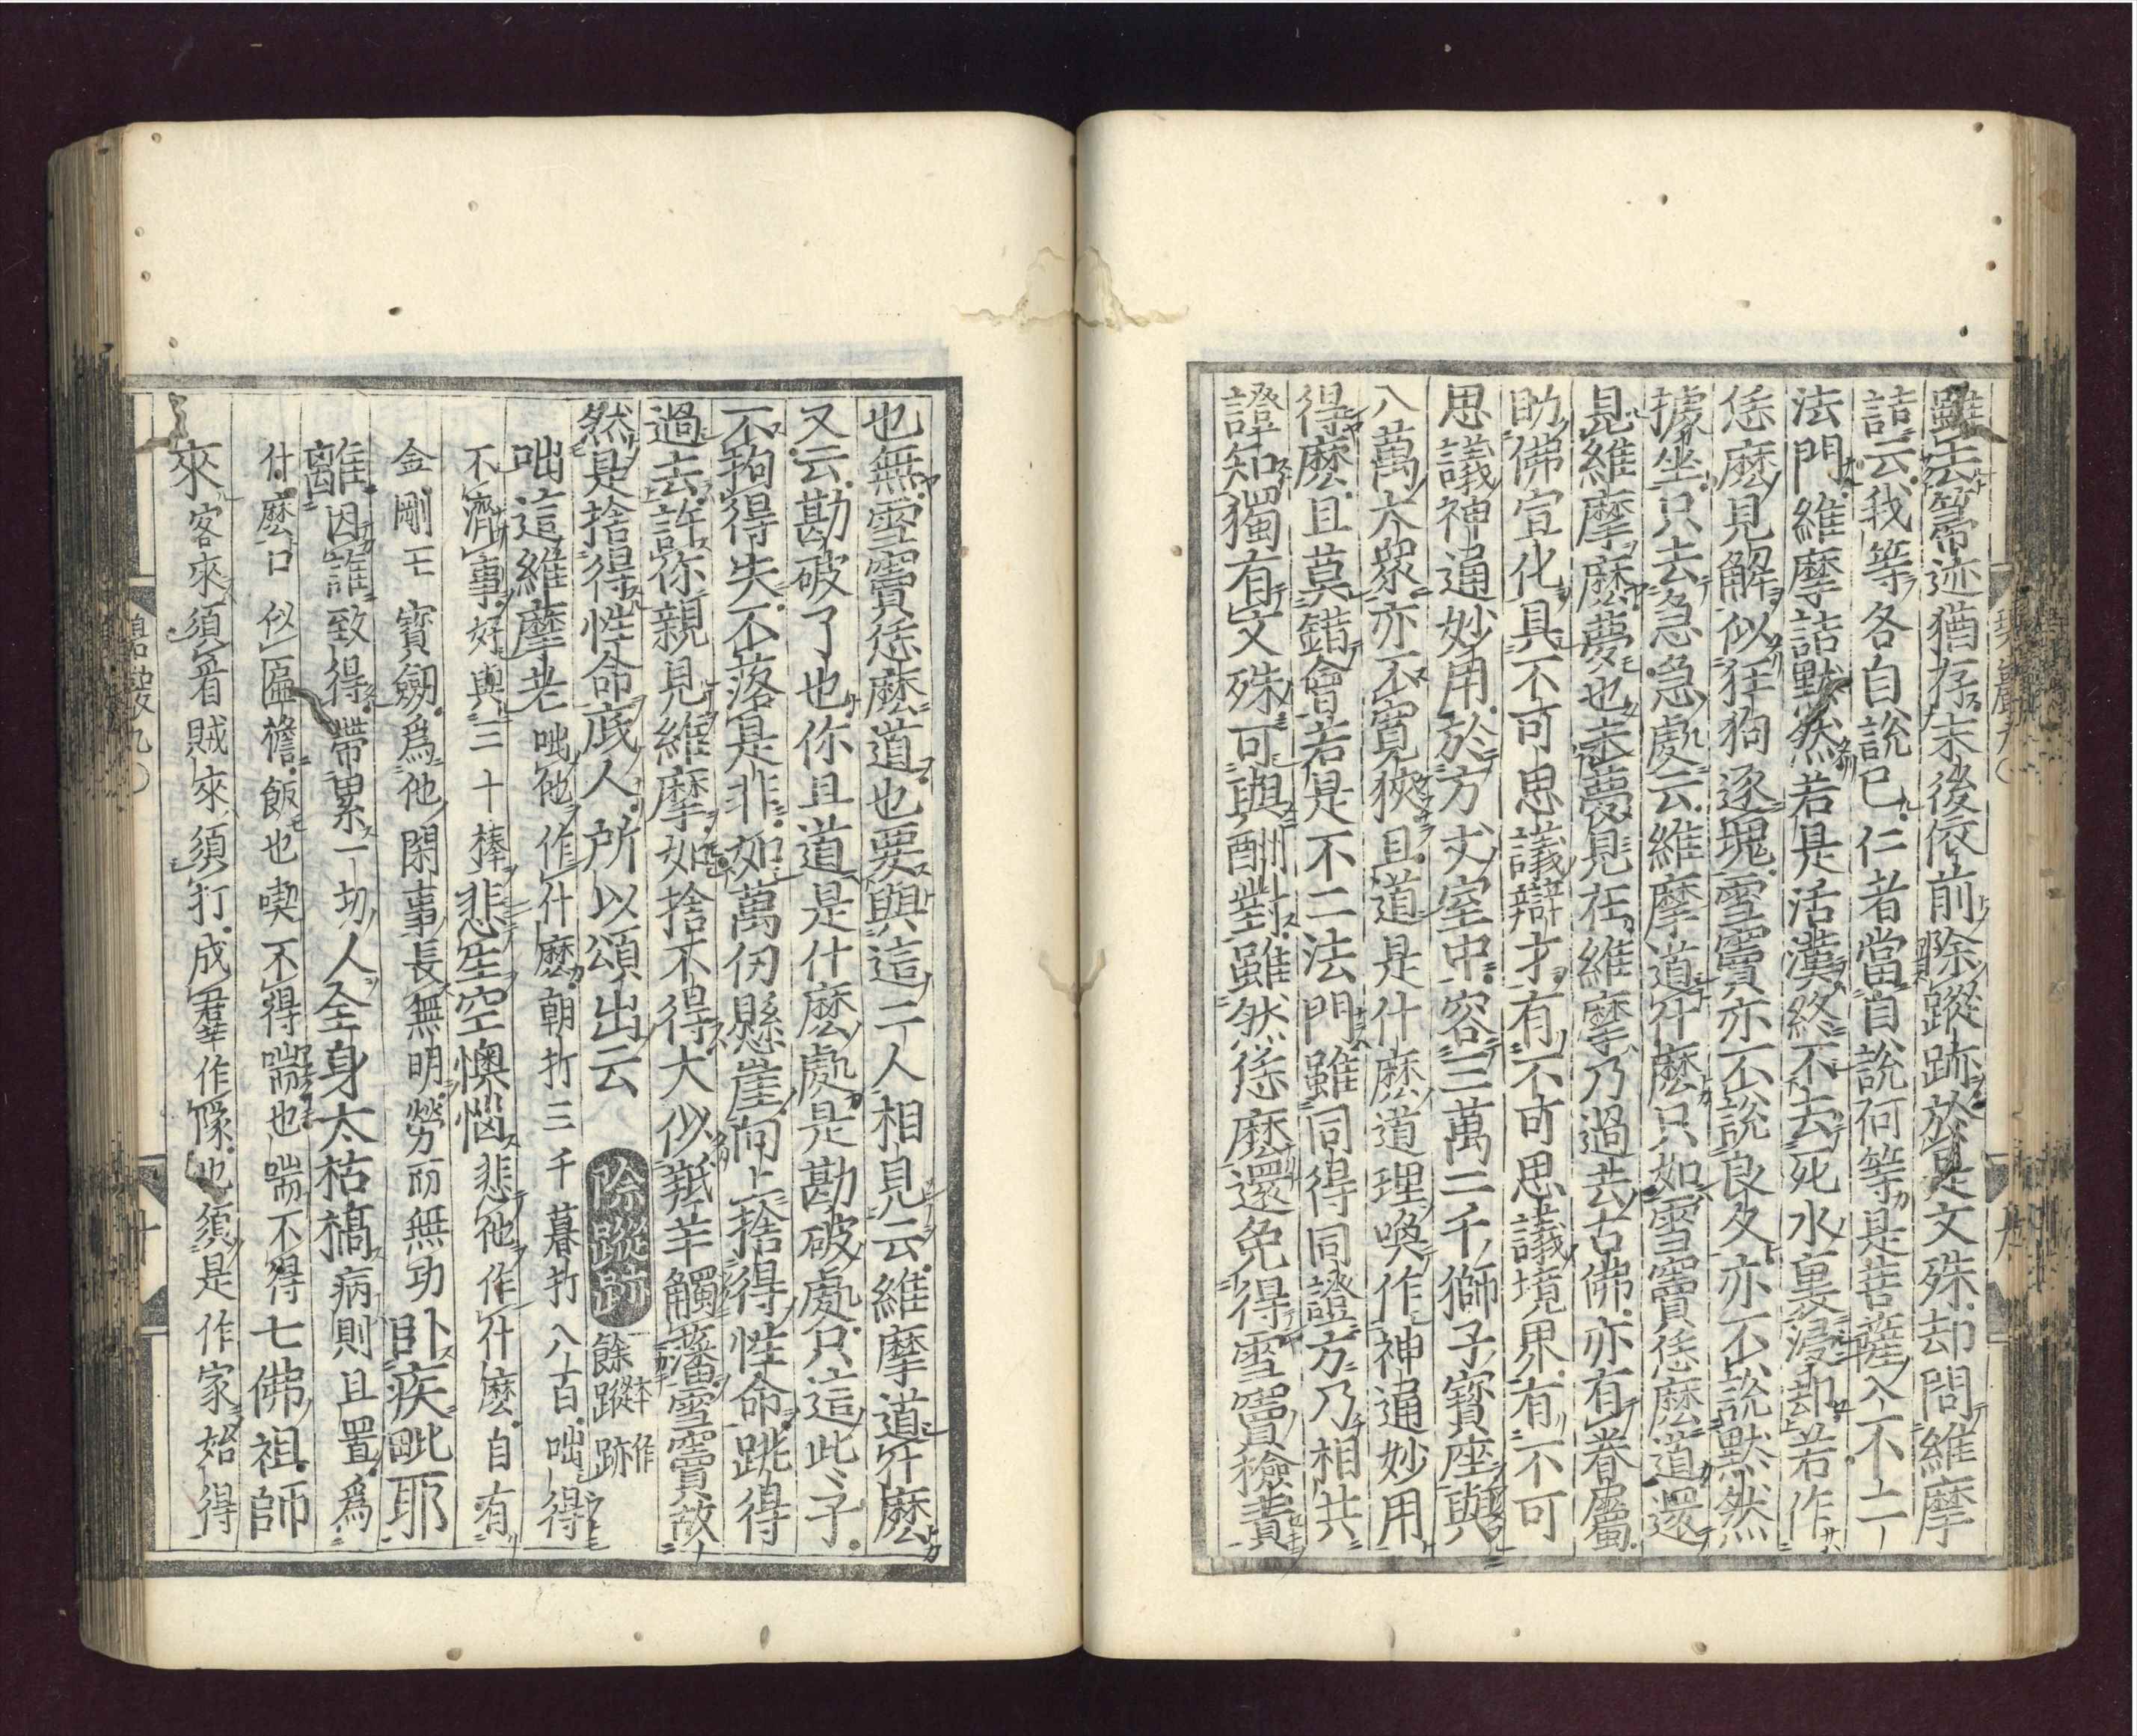 雖去箒迹猶存末後依前除蹤跡於是文殊却問維摩
詰云我等各自說已仁者當自說何等是菩薩入不二
法門維摩詰默然若是活漢終不去死水裏浸却若作
恁麽見解似狂狗逐塊雪竇亦不說良久亦不說默然
據坐只去急急處云維摩道什麽只如雪竇恁麽道還
見維摩麽夢也未夢見在維摩乃過去古佛亦有眷屬
助佛宣化具不可思議辯才有不可思議境界有不可
思議神通妙用於方丈室中容三萬二千獅子寶座與
八萬大衆亦不寛狹且道是什麽道理喚作神通妙用
得麽且莫錯會若是不二法門雖同得同證方乃相共
證知獨有文殊可與酬對雖然恁麽還免得雪竇檢責
也無雪竇恁麽道也要與這二人相見云維摩道什麽
又云勘破了也你且道是什麽處是勘破處只這此子
不拘得失不落是非如萬仞懸崖向上捨得性命跳得
過去許你親見維摩如捨不得大似羝羊觸藩雪竇故
然是捨得性命底人所以頌出云 除蹤跡 餘蹤跡 本作
咄這維摩老 咄他作什麽朝打三千暮打八百咄得
不濟事好與三十棒 悲生空懊惱 悲他作什麽自有
金剛王寶劔爲他閑事長無明勞而無功 卧疾毗耶
離 因誰致得帶累一切人 全身太枯槁 病則且置爲
什麽口似匾檐飯也喫不得喘也喘不得 七佛祖師
來 客來須看賊來須打成羣作隊也須是作家始得